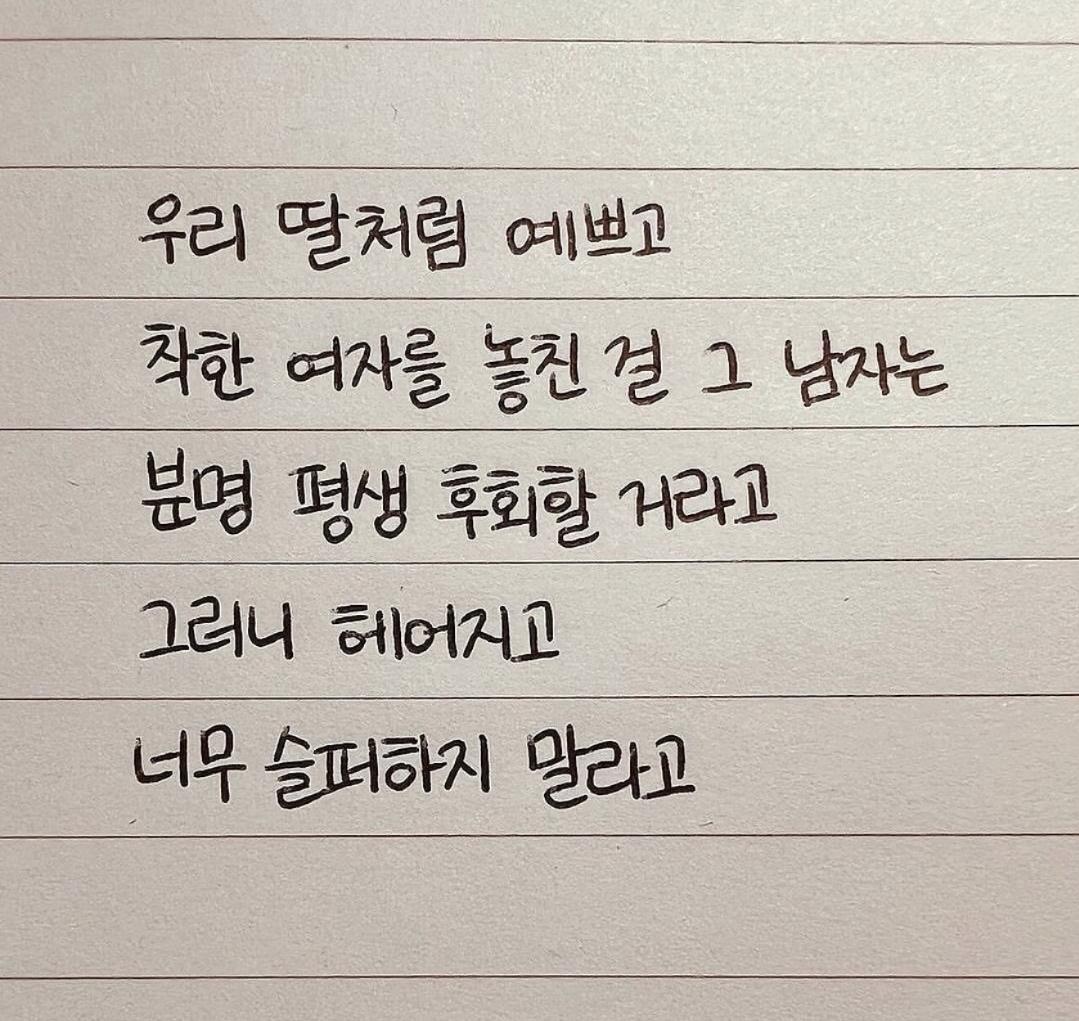 우리 딸처럼 예쁘고
착한 여자를 놓친 걸 그 남자는
분명 평생 후회할 거라고
그러니 헤어지고
너무 슬퍼하지 말라고